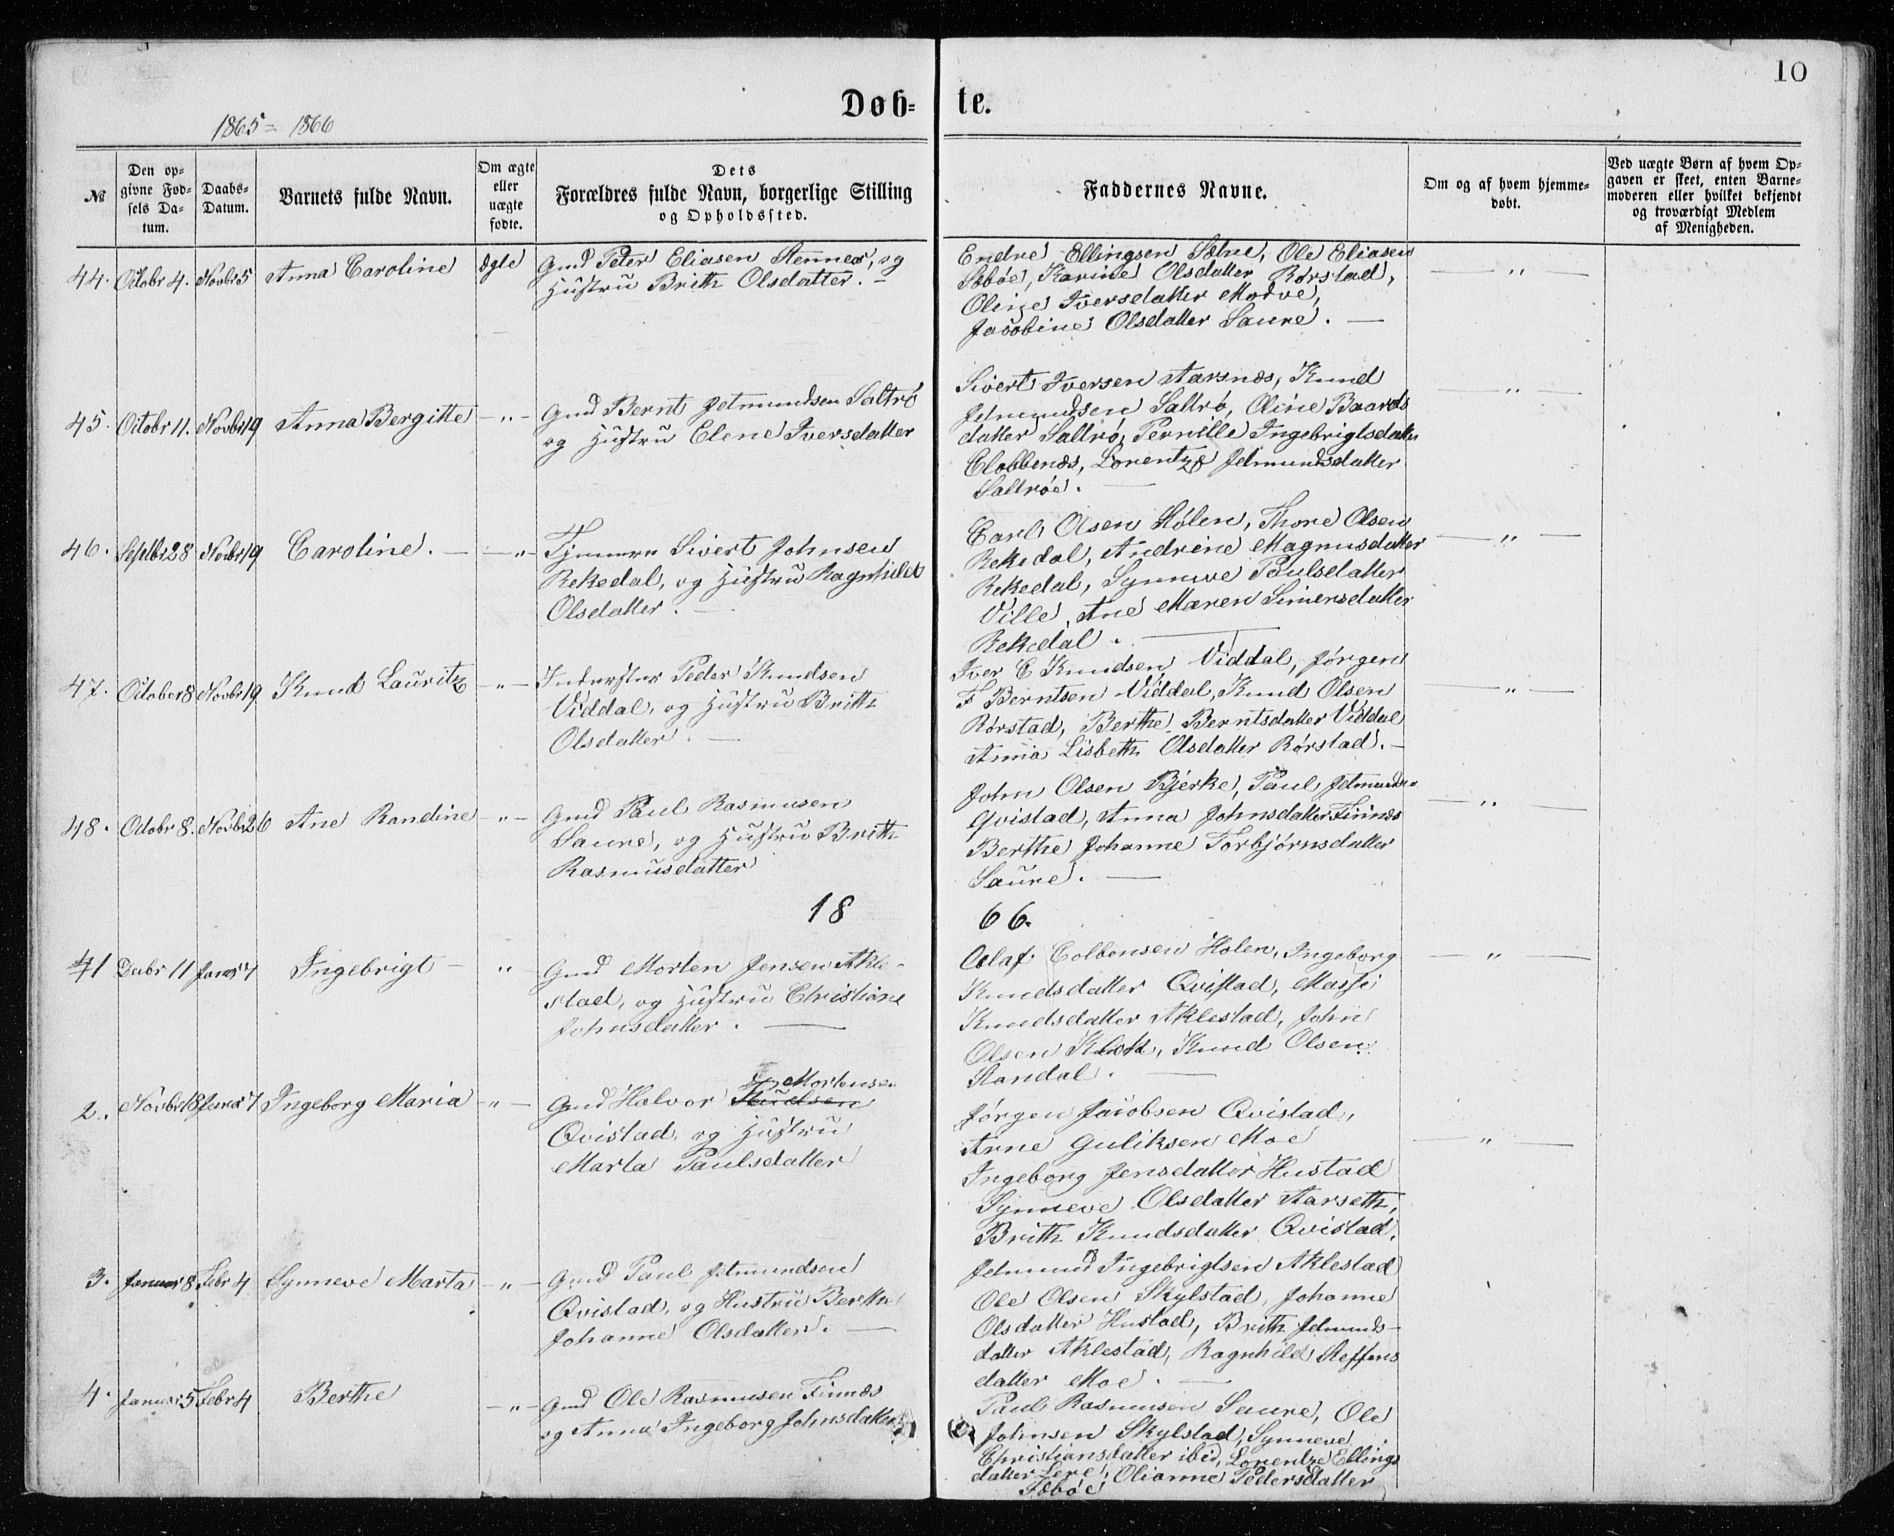 10
Døb- te.
1865 = 1866
№
Den op-
givne Fød-
sels Da-
tum.
Daabs-
Datum.
Barnets fulde Navn.
Om ægte
eller
uægte
fødte.
Dets
Forældres fulde Navn, borgerlige Stilling
og Opholdssted.
Faddernes Navne.
Om og af hvem hjemme-
døbt.
Ved uægte Børn af hvem Op-
gaven er skeet, enten Barne-
moderen eller hvilket bekjendt
og troværdigt Medlem
af Menigheden.
44. Octobr 4. Novbr 5 Anna Caroline ægte
Gmd Peter Eliasen Stennes, og
Hustru Brith Olsdatter. –
Endre Ellingsen Sæbø, Ole Eliasen
Sæbøe, Karine Olsdatter Rørstad,
Oline Iversdatter Modve,
Jacobine Olsdatter Saure. —
— " —
45. Octobr 11. Novbr 19 Anna Bergitte — " —
Gmd Bernt Jetmundsen Saltrø
og Hustru Elene Iversdatter
Sivert Iversen Aarsnæs, Knud
Jetmundsen Saltrø, Oline Baards
datter Saltrø, Pernille Ingebrigtsdatter
Clobbenæs, Lorentze Jetmundsdatter
Saltrøe. —
— " —
46. Septbr 28 Novbr 19 Caroline. — — " —
Sivert Johnsen
Rekedal, og Hustru Ragnhild
Olsdatter. —
Carl Olsen Hølen, Thore Olsen
Rekedal, Andrine Magnusdatter
Rekedal, Synneve Paulsdatter
Ville, Ane Maren Simensdatter
Rekedal. —
— " —
47. October 8 Novbr 19 Knud Lauritz — " —
Inderster Peder Knudsen
Viddal, og Hustru Brith
Olsdatter. —
Iver E Knudsen Viddal, Jørgen
F Berntsen Viddal, Knud Olsen
Rørstad, Berthe Berntsdatter Viddal
Anna Lisbeth Olsdatter Rørstad. –
— " —
48. Octobr 8. Novbr 26 Ane Randine — " —
Gmd Paul Rasmusen
Saure, og Hustru Brith
Rasmusdatter
John Olsen Bjerke, Paul Jetmundsen
Qvistad, Anna Johnsdatter Finnæs
Berthe Johanne Torbjørnsdatter
Saure. —
— " —
18 66.
1 Decbr 11 Januar 7 Ingebrigt – "
Gmd Morten Jensen Akle-
stad, og Hustru Christiane
Johnsdatter. —
Olaf Colbensen Holen, Ingeborg
Knudsdatter Qvistad, Massi
Knudsdatter Aklestad, John
Olsen Klok, Knud Olsen
Standal. —
— " —
2. Novbr 18 Januar 7 Ingeborg Maria — " —
Mortensen
Gmd Halvor
Qvistad, og Hustru
Marta Paulsdatter
Jørgen Jacobsen Qvistad,
Arne Guliksen Moe
Ingeborg Jensdatter Hustad
Synneve Olsdatter Aarseth,
Brith Knudsdatter Qvistad.
— " —
3. Januar 8 Febr 4 Synneve Marta — " —
Gmd Paul Jetmundsen
Qvistad, og Hustru Berthe
Johanne Olsdatter. —
Jetmund Ingebrigtsen Aklestad
Ole Olsen Skylstad, Johanne
Olsdatter Hustad, Brith Jetmunds-
datter Aklestad, Ragnhild Steffens
datter Moe. —
4. Januar 5 Febr 4 Berthe — " —
Gmd Ole Rasmusen Finnæs
og Anna Ingeborg Johnsdatter
Paul Rasmusen Saure, Ole
Johnsen Skylstad, Synneve
Christiansdatter ibid, Lorentze Ellings
datter Lere, Olianne Pedersdatter
Sæbøe